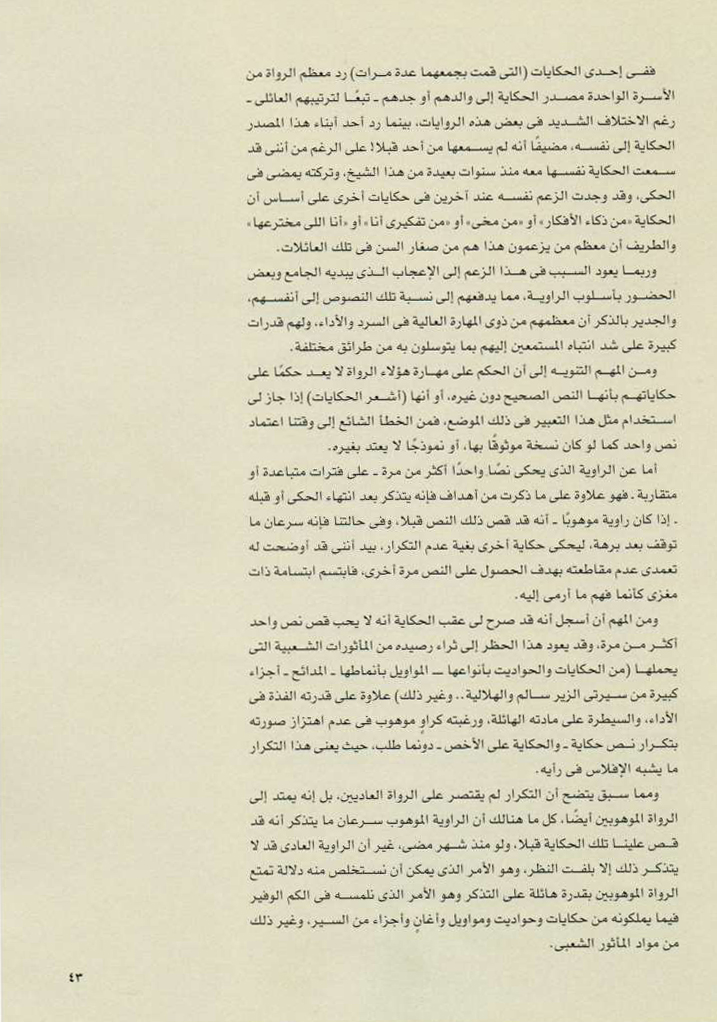 ففى إحدى الحكايات (التى قمت بجمعهما عدة مرات) رد معظم الرواة من
الأسرة الواحدة مصدر الحكاية إلى والدهم أو جدهم ـ تبعًا لترتيبهم العائلى ـ
رغم الاختلاف الشديد فى بعض هذه الروايات، بينما رد أحد أبناء هذا المصدر
الحكاية إلى نفسه، مضيفًا أنه لم يسمعها من أحد قبلا! على الرغم من أننى قد
سمعت الحكاية نفسها معه منذ سنوات بعيدة من هذا الشيخ، وتركته يمضى فى
الحكى، وقد وجدت الزعم نفسه عند آخرين فى حكايات أخرى على أساس أن
الحكاية «من ذكاء الأفكار» أو «من مخى» أو «من تفكيرى أنا» أو «أنا اللى مخترعها»
والطريف أن معظم من يزعمون هذا هم من صغار السن فى تلك العائلات.
وربما يعود السبب فى هذا الزعم إلى الإعجاب الذى يبديه الجامع وبعض
الحضور بأسلوب الراوية، مما يدفعهم إلى نسبة تلك النصوص إلى أنفسهم،
والجدير بالذكر أن معظمهم من ذوى المهارة العالية فى السرد والأداء، ولهم قدرات
كبيرة على شد انتباه المستمعين إليهم بما يتوسلون به من طرائق مختلفة.
ومن المهم التنويه إلى أن الحكم على مهارة هؤلاء الرواة لا يعد حكمًا على
حكاياتهم بأنها النص الصحيح دون غيره، أو أنها (أشعر الحكايات) إذا جاز لى
استخدام مثل هذا التعبير فى ذلك الموضع، فمن الخطأ الشائع إلى وقتنا اعتماد
نص واحد كما لو كان نسخة موثوقًا بها، أو نموذجًا لا يعتد بغيره.
أما عن الراوية الذى يحكى نصًا واحدًا أكثر من مرة ـ على فترات متباعدة أو
متقاربة ـ فهو علاوة على ما ذكرت من أهداف فإنه يتذكر بعد انتهاء الحكى أو قبله
ـ إذا كان راوية موهوبًا ـ أنه قد قص ذلك النص قبلا، وفى حالتنا فإنه سرعان ما
توقف بعد برهة، ليحكى حكاية أخرى بغية عدم التكرار، بيد أننى قد أوضحت له
تعمدى عدم مقاطعته بهدف الحصول على النص مرة أخرى، فابتسم ابتسامة ذات
مغزى كأنما فهم ما أرمى إليه.
ومن المهم أن أسجل أنه قد صرح لى عقب الحكاية أنه لا يحب قص نص واحد
أكثر من مرة، وقد يعود هذا الحظر إلى ثراء رصيده من المأثورات الشعبية التى
يحملها (من الحكايات والحواديت بأنواعها ـ المواويل بأنماطها ـ المدائح ـ أجزاء
كبيرة من سيرتى الزير سالم والهلالية.. وغير ذلك) علاوة على قدرته الفذة فى
الأداء، والسيطرة على مادته الهائلة، ورغبته كراوٍ موهوب فى عدم اهتزاز صورته
بتكرار نص حكاية ـ والحكاية على الأخص ـ دونما طلب، حيث يعنى هذا التكرار
ما يشبه الإفلاس فى رأيه.
ومما سبق يتضح أن التكرار لم يقتصر على الرواة العاديين، بل إنه يمتد إلى
الرواة الموهوبين أيضًا، كل ما هنالك أن الراوية الموهوب سرعان ما يتذكر أنه قد
قص علينا تلك الحكاية قبلا، ولو منذ شهر مضى، غير أن الراوية العادى قد لا
يتذكر ذلك إلا بلفت النظر، وهو الأمر الذى يمكن أن نستخلص منه دلالة تمتع
الرواة الموهوبين بقدرة هائلة على التذكر وهو الأمر الذى نلمسه فى الكم الوفير
فيما يملكونه من حكايات وحواديت ومواويل وأغانٍ وأجزاء من السير، وغير ذلك
من مواد المأثور الشعبى.
٤٣